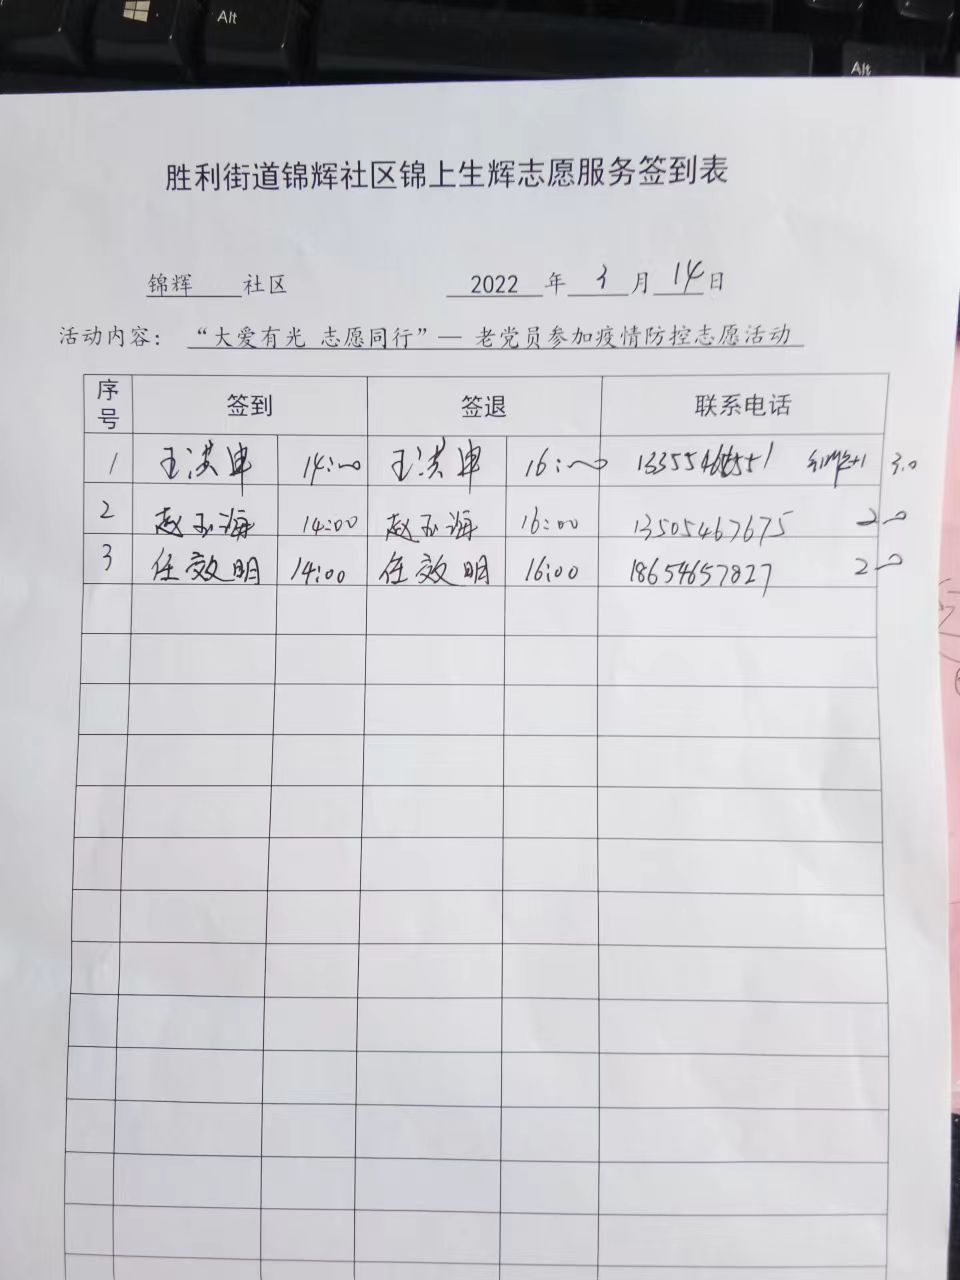 Alt
Alt
胜利街道锦辉社区锦上生辉志愿服务签到表
锦辉 社区 2022 年 3 月 14 日
活动内容： “大爱有光 志愿同行”— 老党员参加疫情防控志愿活动
序号 签到 签退 联系电话
1 王洪 14:00 王洪 16:00 3.0
2 赵玉海 14:00 赵玉海 16:00 13505467675 2.0
3 任效明 14:00 任效明 16:00 18654657827 2.0